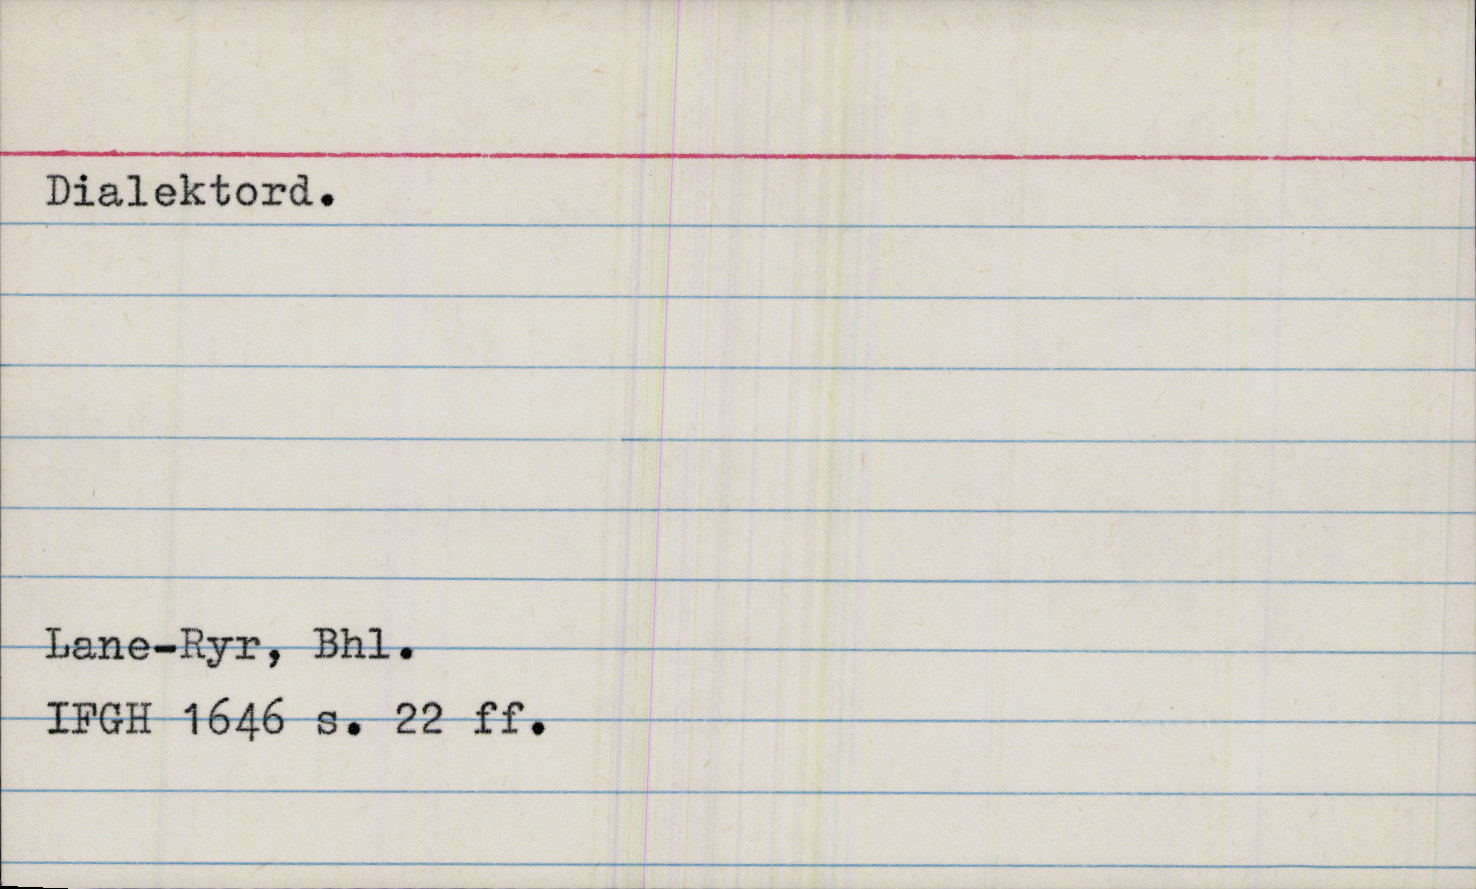 Dialektord.
Lane-Ryr, Bhl.
IFGH 1646 s. 22 ff.